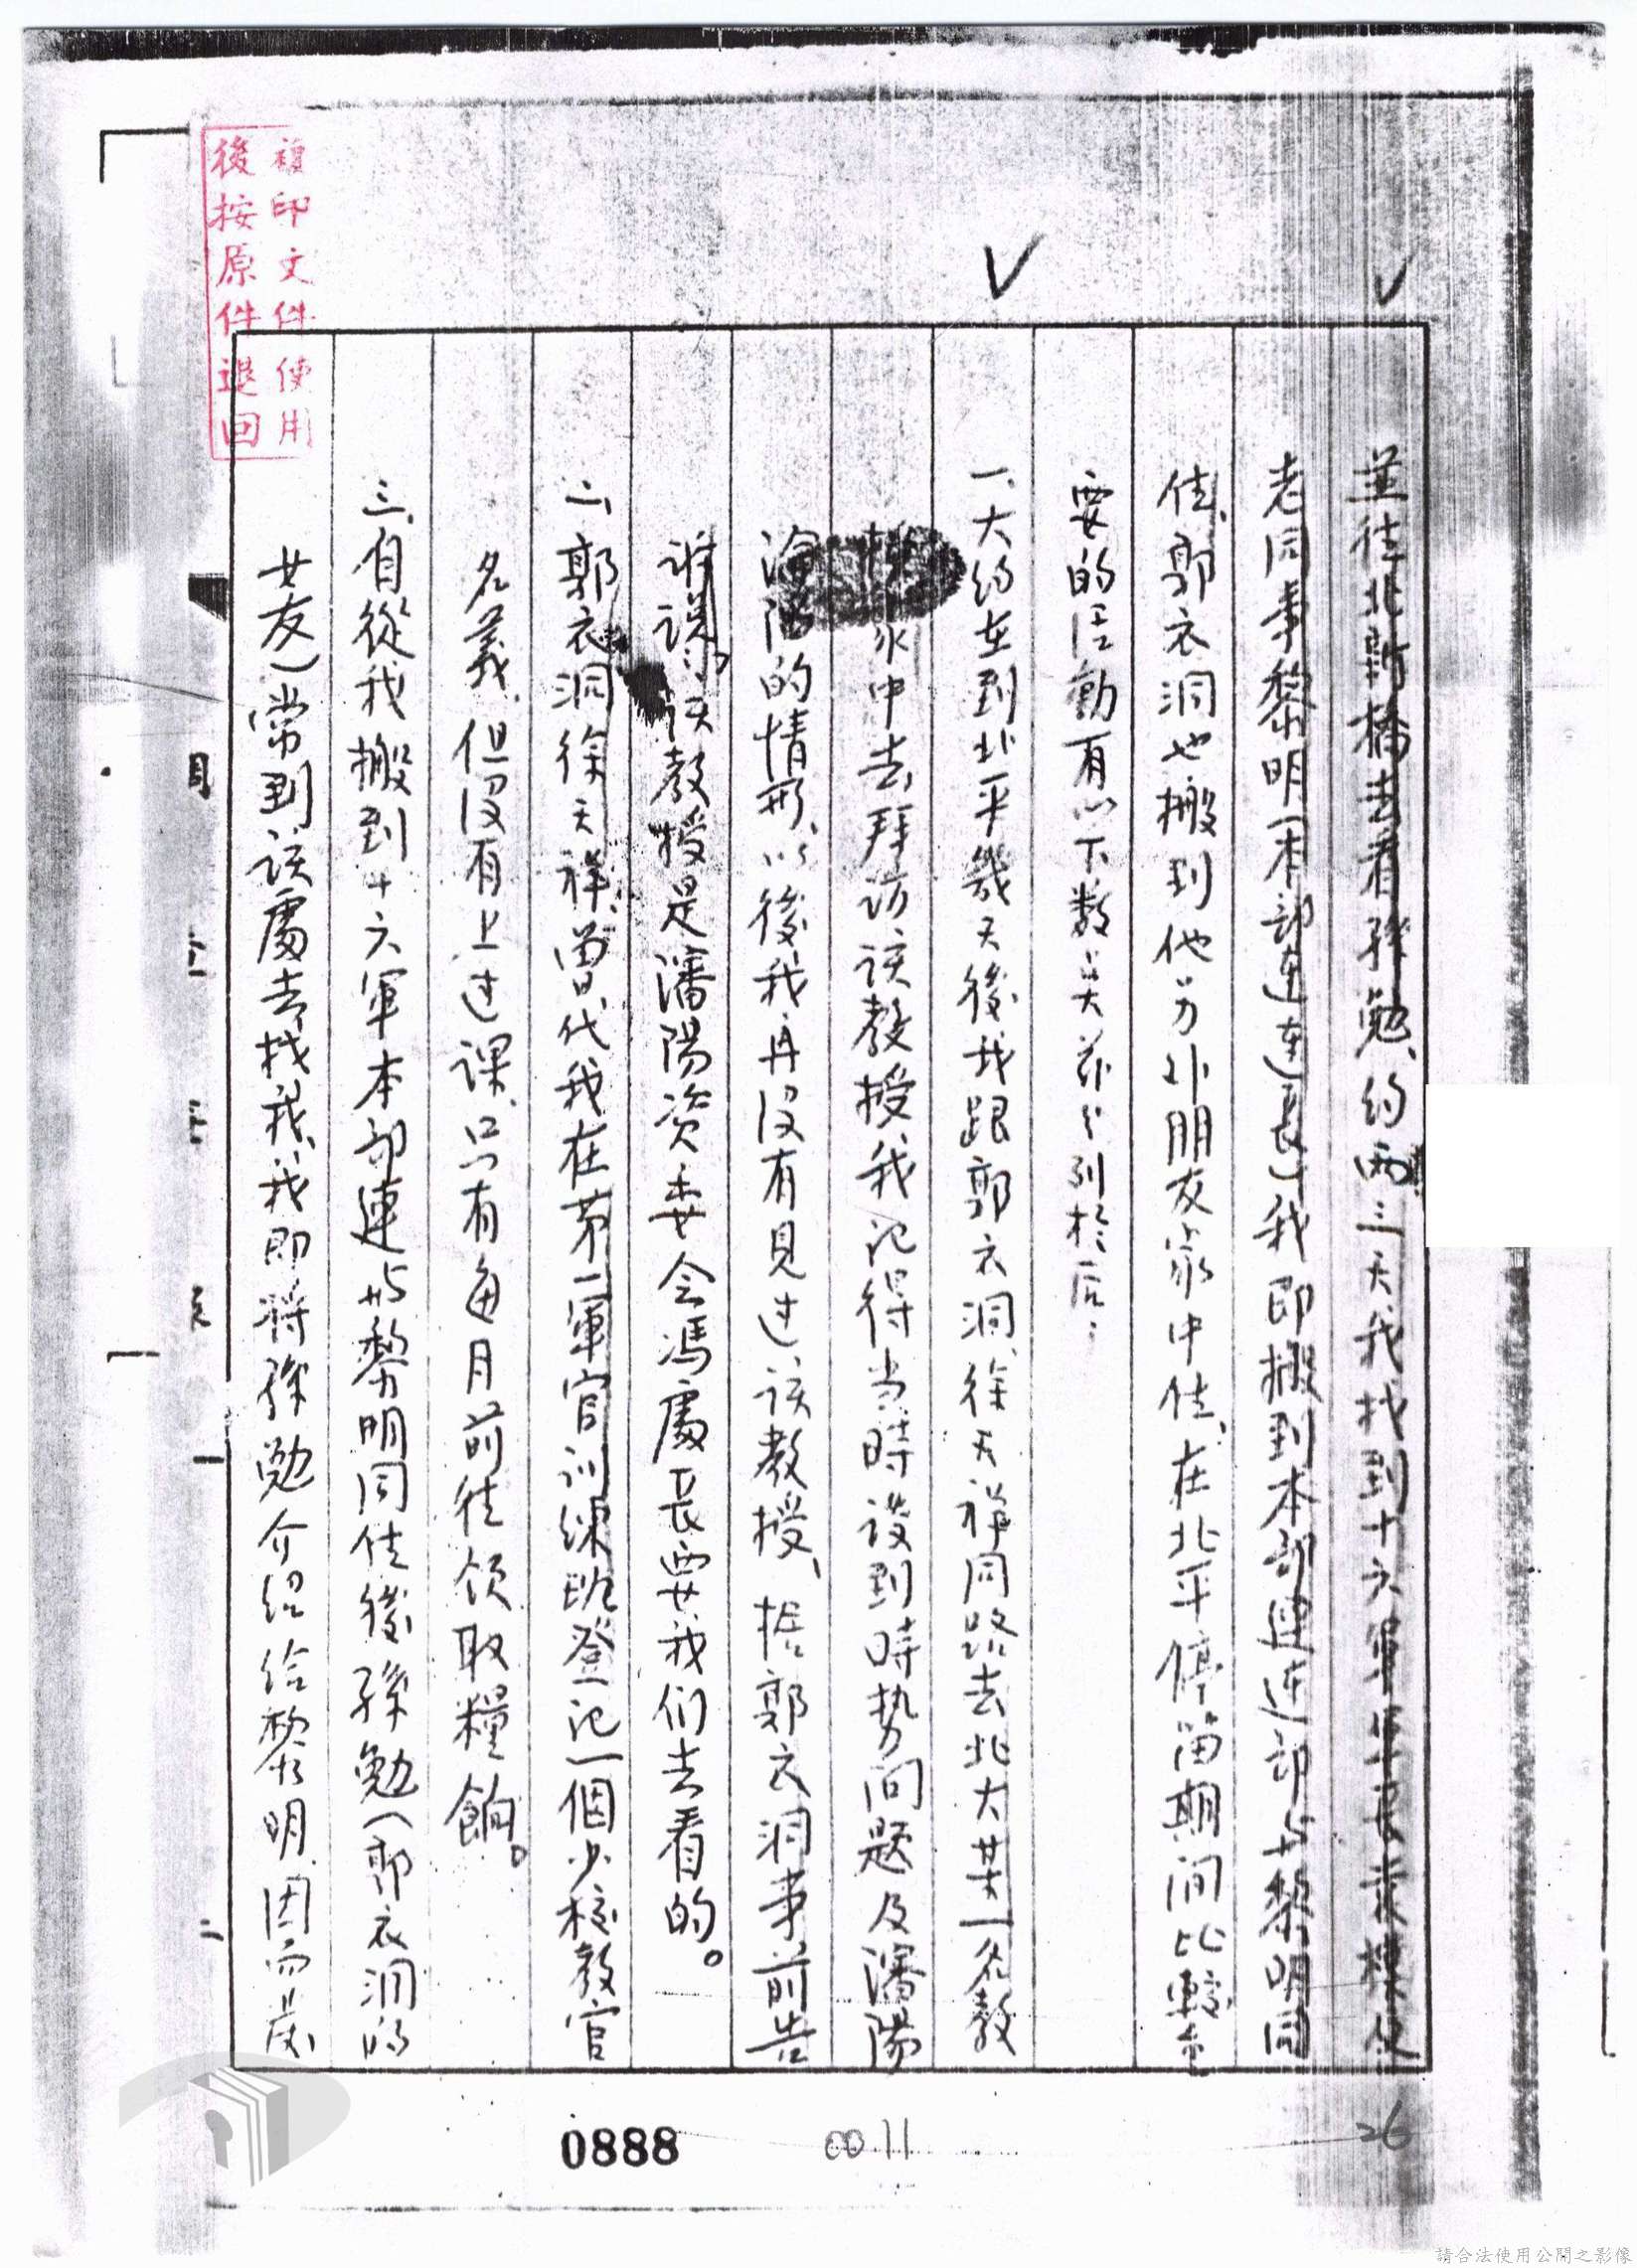 複印文件使用
後按原件退回
並往北新橋去看孫勉、約兩三天我找到十六軍軍長袁樸使
老同事黎明(本部連連長)我即搬到本部連連部与黎明同
住、郭衣洞也搬到他另外朋友家中住、在北平停留期間比較重
要的活動有以下数点茲分列於后:
一、大約在到北平幾天後我跟郭衣洞、徐天祥同路去北大某一名教
授家中去拜訪該教授、我記得当時談到時势问题及瀋陽
淪陷的情形、以後我再沒有見过该教授、據郭衣洞事前告
訴該教授是瀋陽资委会馮處長要我们去看的。
二、郭衣洞徐天祥、曾代我在第一軍官训練班登记一個少校教官
名義、但沒有上过课、只有每月前往领取糧餉。
三、自從我搬到十六軍本部連与黎明同住後孫勉(郭衣洞的
女友)常到该處去找我、我即將孫勉介绍给黎明、因而茂、
0888
0011
26
二
請合法使用公開之影像